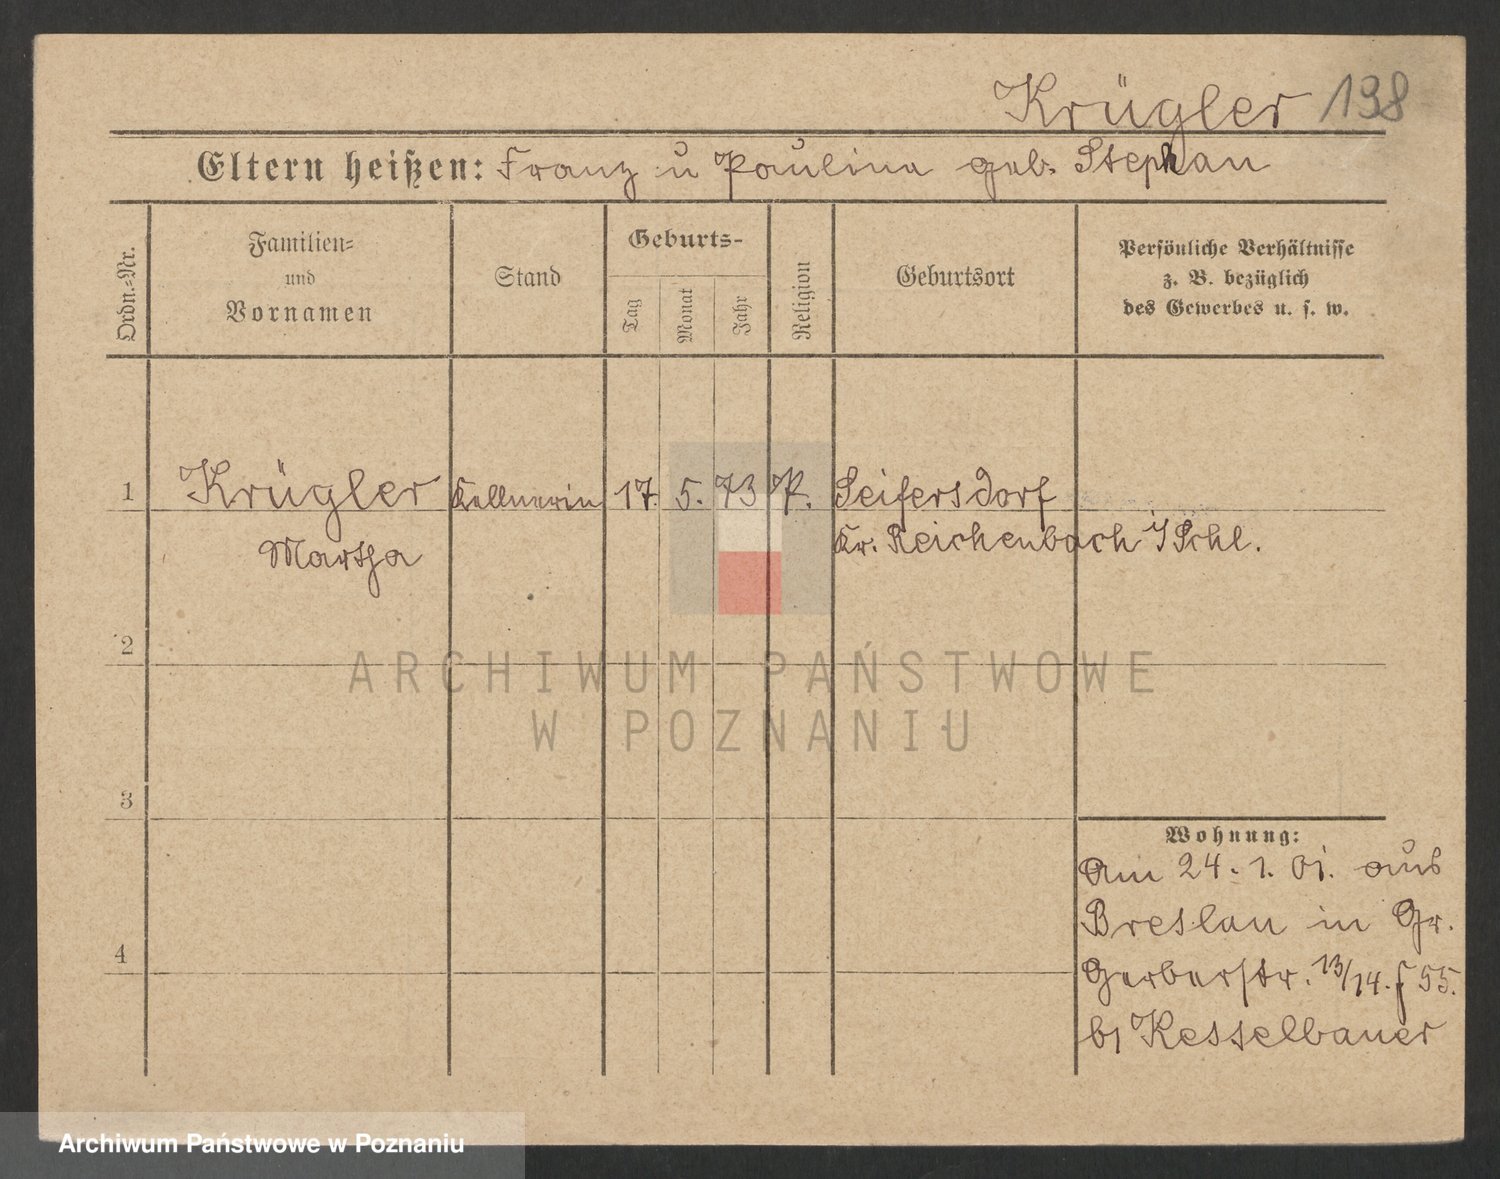 Krügler 198
Eltern heißen: Franz u Paulina geb. Stephan
Ordn.-Nr.
Familien-
und
Vornamen
Stand
Geburts-
Tag
Monat
Jahr
Religion
Geburtsort
Persönliche Verhältnisse
z. B. bezüglich
des Gewerbes u. s. w.
1 Krügler Kellnerin 17. 5. 73 K. Seifersdorf
Martha Kr. Reichenbach i/Schl.
2
3
4
Wohnung:
Am 24. 1. 01. aus
Breslau in Gr.
Gerberstr. 13/14. f 55.
b/ Kesselbauer
ARCHIWUM PAŃSTWOWE
W POZNANIU
Archiwum Państwowe w Poznaniu